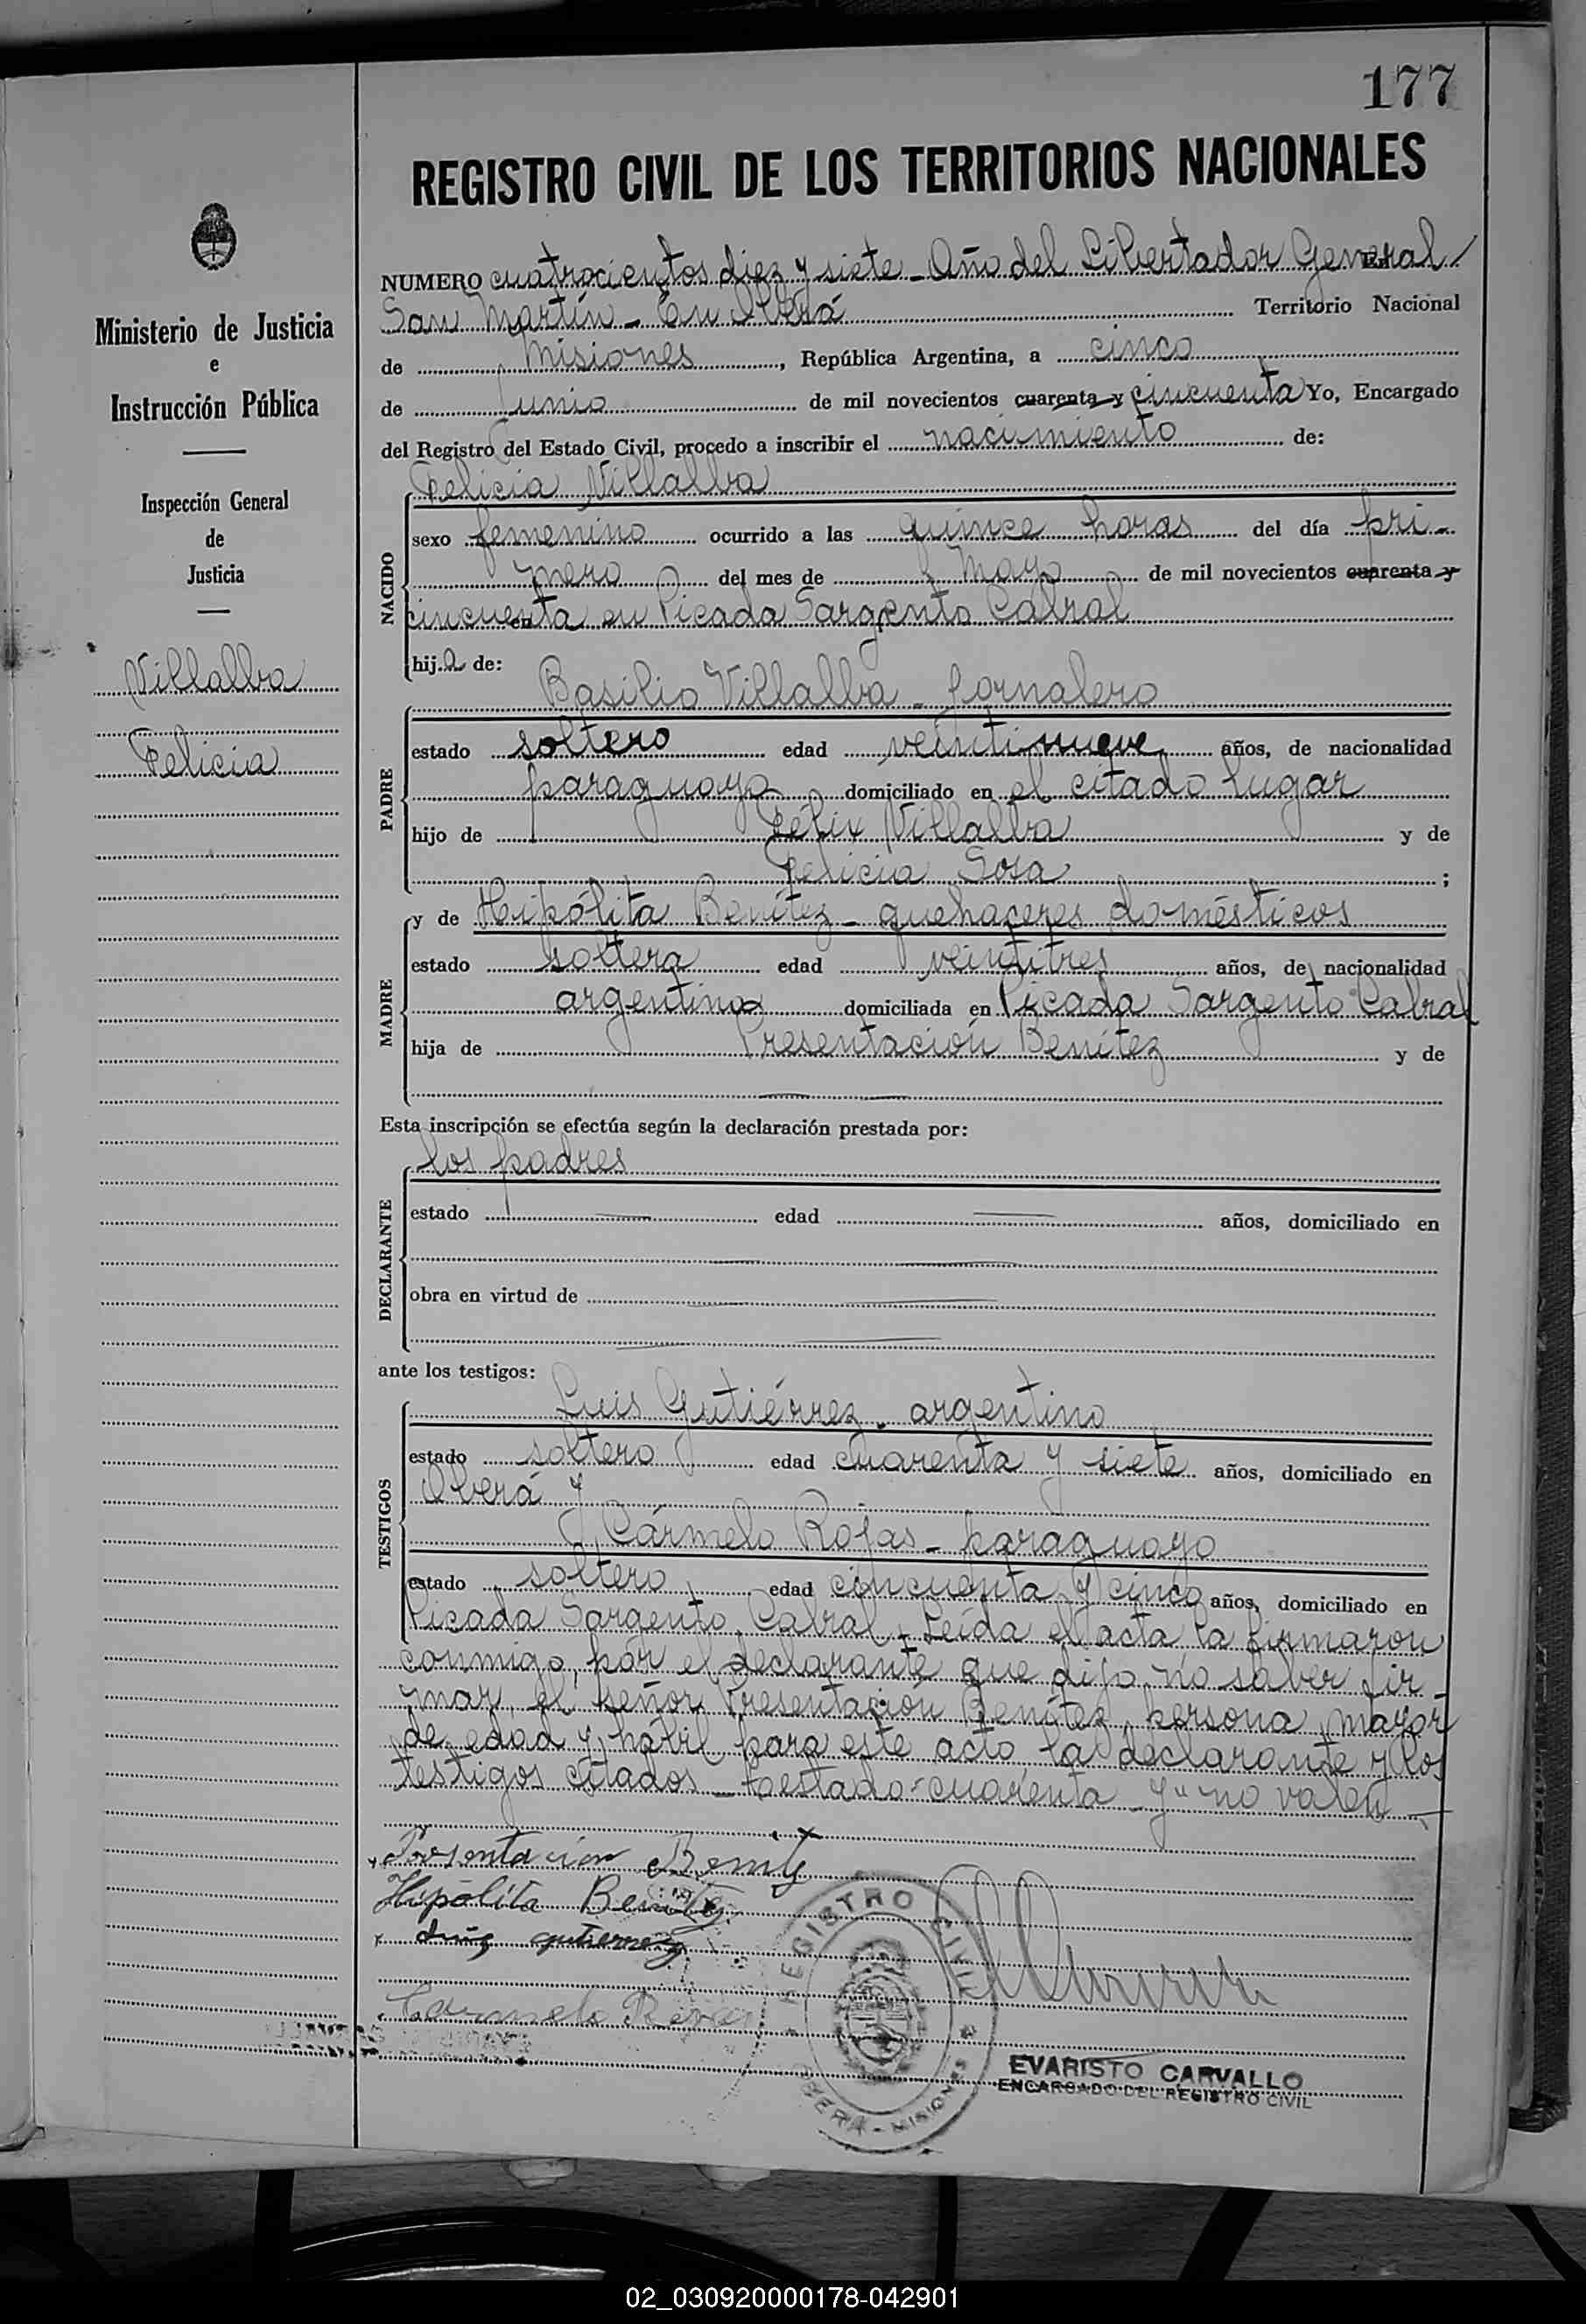 177
REGISTRO CIVIL DE LOS TERRITORIOS NACIONALES
Ministerio de Justicia
e
Instrucción Pública
Inspección General
de
Justicia
Villalba
Felicia
NUMERO cuatrocientos diez y siete - Año del Libertador General
San Martín - En Oberá Territorio Nacional
de Misiones, República Argentina, a cinco
de Junio de mil novecientos cuarenta y cincuenta Yo, Encargado
del Registro del Estado Civil, procedo a inscribir el nacimiento de:
NACIDO
Felicia Villalba
sexo femenino ocurrido a las quince horas del día pri-
mero del mes de Mayo de mil novecientos cuarenta y
cincuenta en Picada Sargento Cabral
hija de:
PADRE
Basilio Villalba - jornalero
estado soltero edad veintinueve años, de nacionalidad
paraguaya domiciliado en el citado lugar
hijo de Félix Villalba y de
Felicia Sosa ;
MADRE
y de Hipólita Benítez - quehaceres domésticos
estado soltera edad veintitres años, de nacionalidad
argentina domiciliada en Picada Sargento Cabral
hija de Presentación Benítez y de
Esta inscripción se efectúa según la declaración prestada por:
DECLARANTE
los padres
estado edad años, domiciliado en
obra en virtud de
ante los testigos:
TESTIGOS
Luis Gutiérrez - argentino
estado soltero edad cuarenta y siete años, domiciliado en
Oberá y
Cármelo Rojas - paraguayo
estado soltero edad cincuenta y cinco años, domiciliado en
Picada Sargento Cabral - Leída el acta la firmaron
conmigo, por el declarante que dijo no saber fir-
mar, el señor Presentación Benítez, persona mayor
de edad y hábil para este acto la declarante y los
testigos citados - testado "cuarenta y" no valen
Presentacion Benitez
Hipólita Benítez
Luis gutierrez
Carmelo
REGISTRO CIVIL
OBERÁ - MISIONES
EVARISTO CARVALLO
ENCARGADO DEL REGISTRO CIVIL
02_030920000178-042901